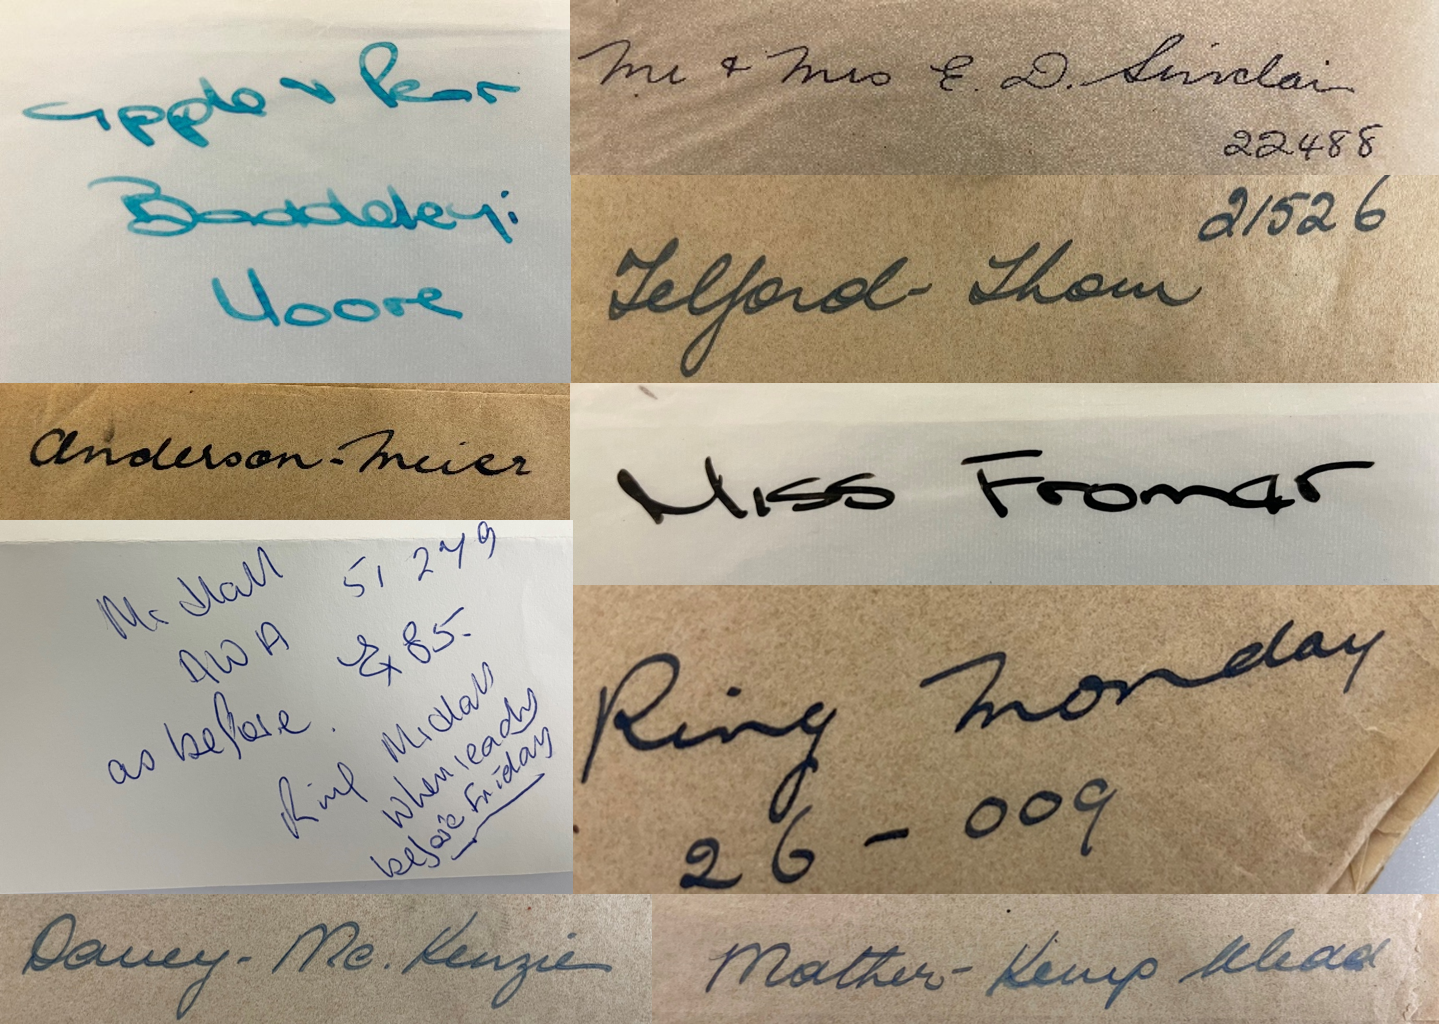 Apple & Pear
Baddeley:
Moore
Mr & Mrs E. D. Sinclair
22488
21526
Telford - Thom
Anderson - Meier
Miss Fromar
Mr Hall 51 279
AWA Ex 85-
as before.
Ring
when ready
before Friday
Ring Monday
26 - 009
Davey - Mc. Kenzie
Mather - Kemp Mead